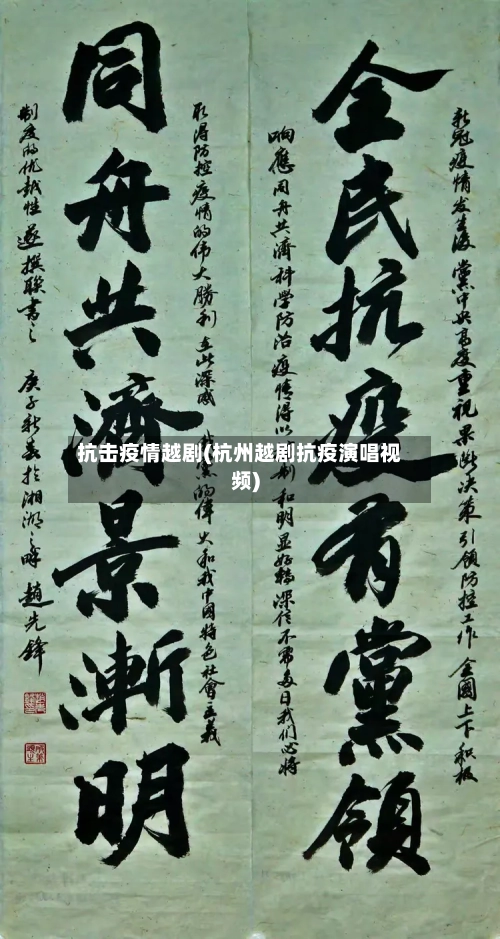 全民抗疫有黨領
新冠疫情发生后 黨中央高度重視 果断决策 引領防控工作 全國上下 积极
响應 同舟共濟 科学防治 疫情得以
制和明显好轉 深信不需多日我们必将
同舟共濟景漸明
取得防控疫情的伟大勝利 至此深感
黨的偉大和我中国特色社會主義
制度的优越性 遂撰聯書之 庚子新春於湘湖之畔 趙先鋒
抗击疫情越剧(杭州越剧抗疫演唱视
频)